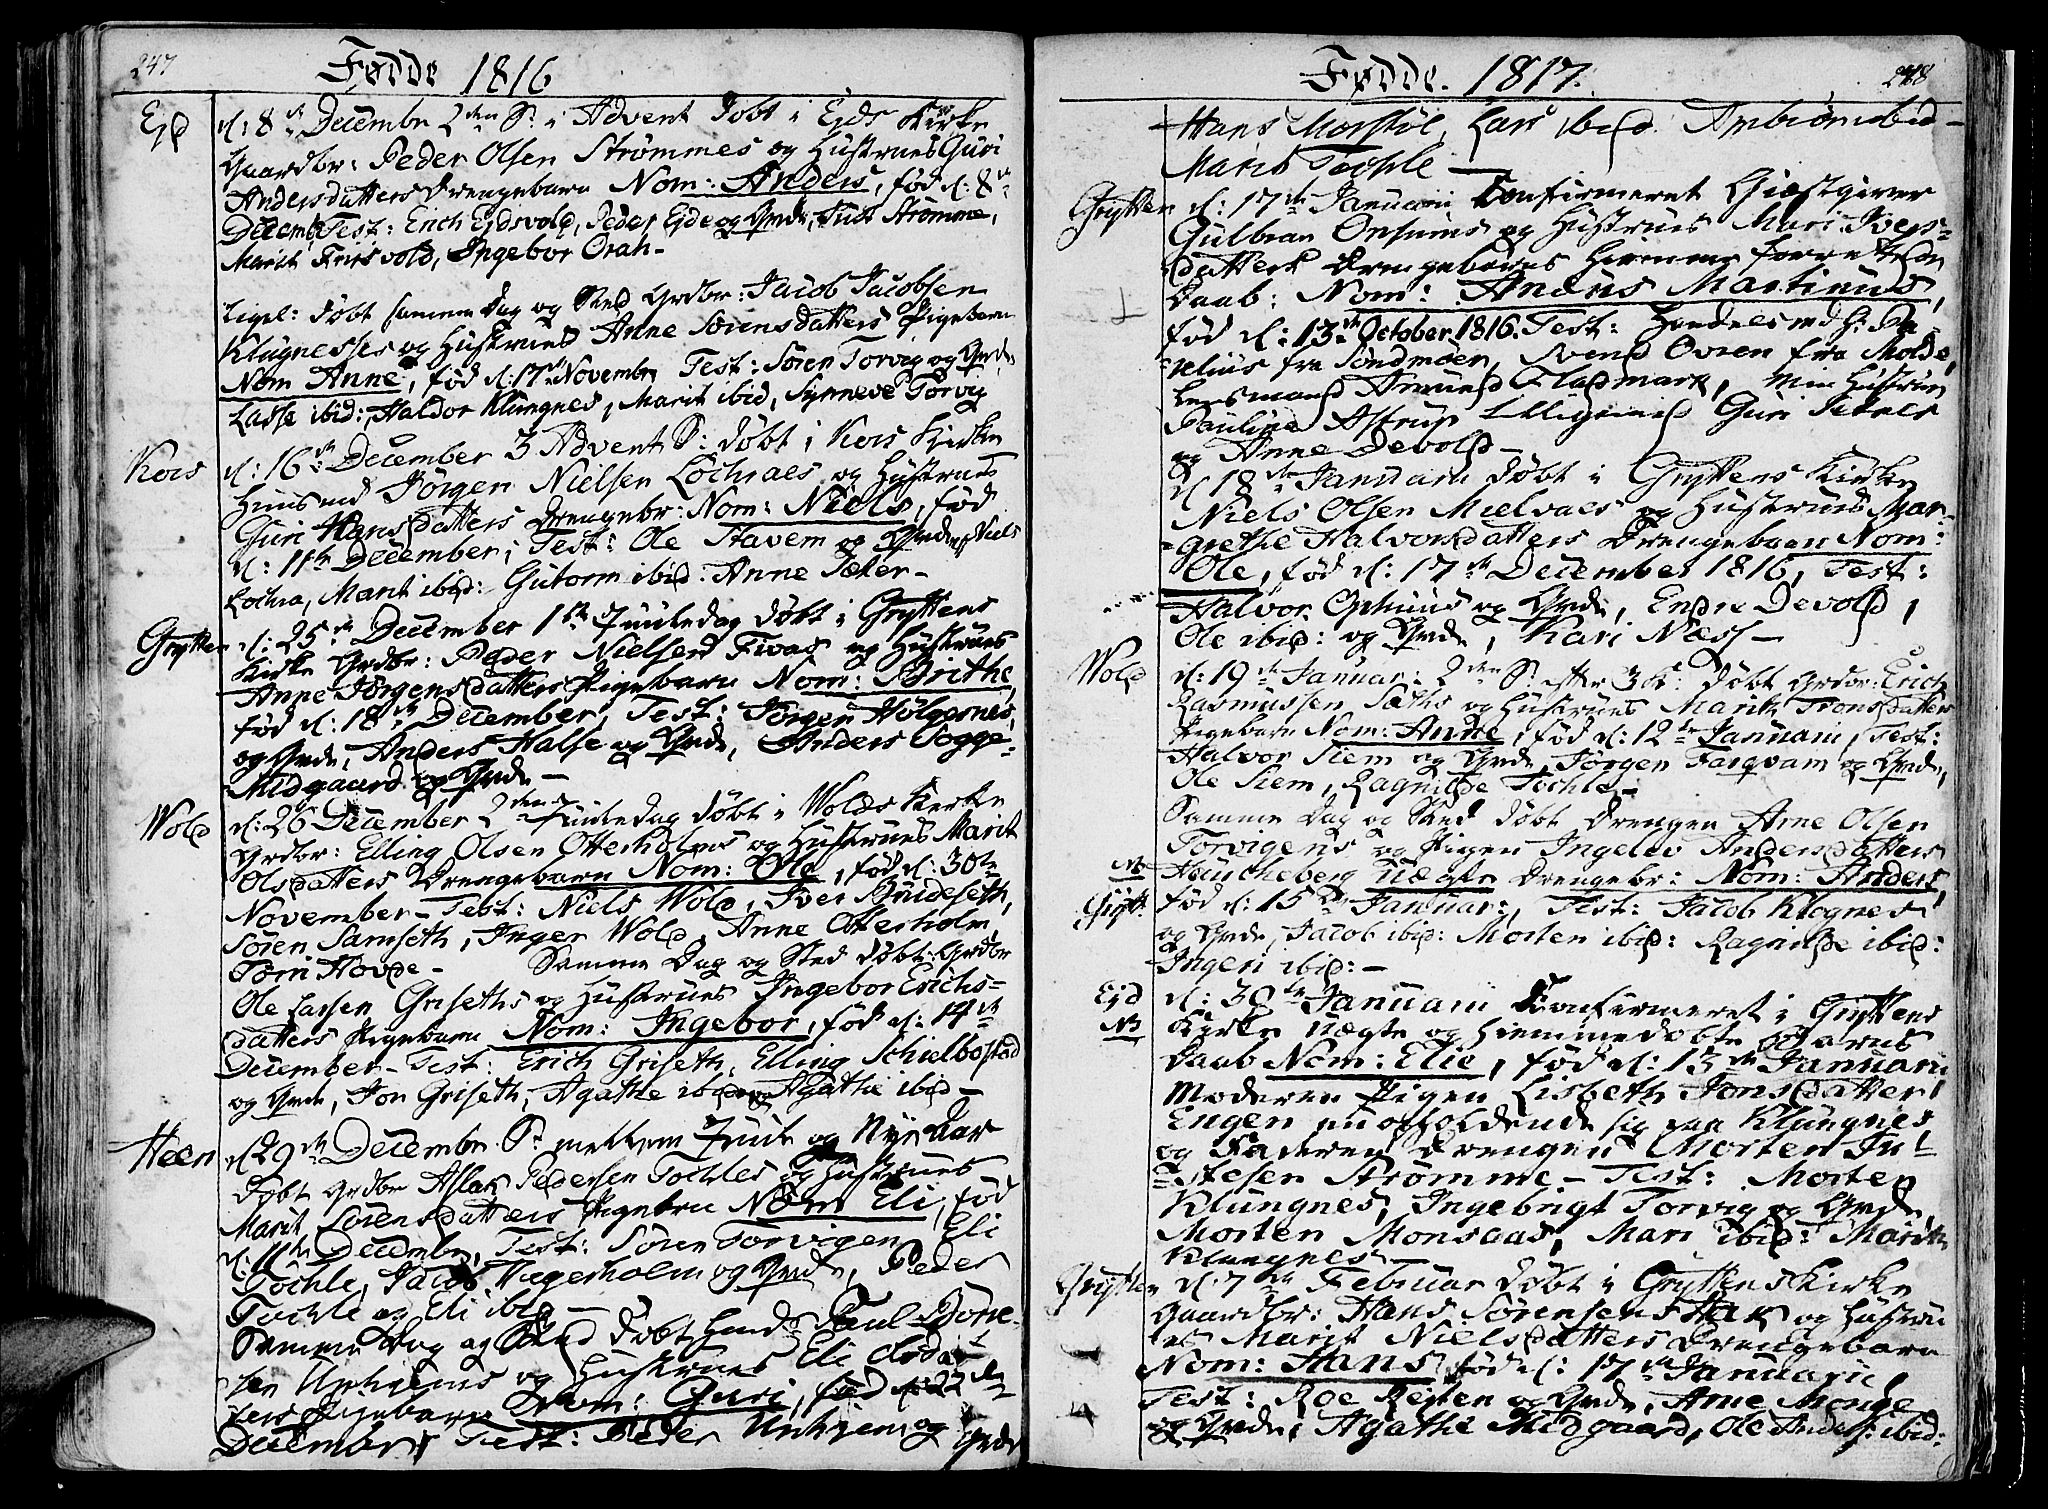 247
Fødde 1816
Ejd
d: 8de Decembr 2den S: i Advent døbt i Ejds Kirke
Gaardbr: Peder Olsen Strømmes og Hustrues Guri
Andersdatters Drengebarn Nom: Anders, fød d: 8de
Decemb. Test: Erich Ejdsvold, Peder Ejde og Grde, Strømme,
Marit Frisvold, Ingebor Orah-
Ligel: døbt samme Dag og Sted Grdbr: Jacob Jacobsen
Klugnesses og Hustrues Anne Sørensdatters Pigebarn
Nom Anne, fød d: 17de Novembr Test: Søren Torvig og Grde
Lasse ibid: Haldor Klungnes, Marit ibid, Synneve Torvig
Kors
d: 16de December 3 Advent S: døbt i Kors Kirke
Huusmd Jörgen Nielsen Lochraes og Hustrues
Guri Hansdatters Drengebr: Nom: Niels, fød
d: 11te December; Test: Ole Stavem og Grde, Niels
Lochra, Marit ibid: Gutorm ibid: Anne Sæter-
Grytten
d: 25de December 1ste Juuledag døbt i Gryttens
Kirke Grdbr: Peder Nielsen Fivas og Hustrues
Anne Jörgensdatters Pigebarn Nom: Brithe
fød d: 18de December, Test: Jörgen Holgernes,
og Grde, Anders Halse og Grde, Anders Sogge-
Midgaard og Grde-
Wold
d: 26 December 2den Juuledag døbt i Wolds Kirke
Grdbr: Elling Olsen Otterholms og Hustrues Marit
Olsdatters Drengebarn Nom: Ole, fød d: 30te
November- Test: Niels Wold, Iver Bruideseth,
Sören Samseth, Inger Wold, Anne Otterholm,
Torn Hovde- Samme Dag og Sted døbt: Grdbr
Ole Larsen Griseths og Hustrues Ingebor Erichs-
datters Pigebarn Nom: Ingebor, fød d: 14de
December- Test: Erich Griseth, Elling Schielbostad
og Grde, Jon Griseth, Agathe ibid og Agathe ibid-
Heen
d 29de Decembr S: mellem Juul og Nye Aar
døbt Grdbr Aslak Pedersen Tochles og Hustrues
Marit Sörensdatters Pigebrn Nom Eli, fød
d: 11te Decembr, Test: Sören Torvigen, Eli
Tochle, Jacob Hagerholm og Grde, Peder
Tochle og Eli ibid-
Samme Dag og Sted døbt Paul
Unhiems og Hustrues Eli
ters Pigebarn Nom: Guri, fød d: 22de
December, Test: Peder Unhjem og Grde
Fødde. 1817.
248
Hans Morstöl, Lars ibid Ambiörn ibid-
Marit Tochle-
Grytten
d: 17de Januarii Confirmeret Giæstgiver
Gulbran Onsums og Hustrues Mari Ivers-
datters Drengebarns hiemme forrettede
Daab: Nom: Andrs Martinus,
fød d: 13de October 1816. Test: Handelsmd H:
fra Söndmöer, Svend Ovren fra Molde,
Lensmand Amund Fladmark, Min Hustrue
Pauline Astrup, Guri
og Anne Devold-
d 18de Januarii døbt i Gryttens Kirke
Niels Olsen Mielvaes og Hustrues Mar-
grethe Halvorsdatters Drengebarn Nom:
Ole, fød d: 17de December 1816, Test:
Halvor Ophuus og Grde, Endre Devold,
Ole ibid: og Grde, Kari Næss-
Wold
d: 19de Januar: 2den S: efter 3 K: døbt Grdbr: Erich
Rasmussen Sæths og Hustrues Marit Tronsdatters
Pigebarn Nom: Anne, fød d: 12te Januarii, Test:
Halvor Siem og Grde, Jörgen Farqvam og Grde,
Ole Siem, Ragnilde Tochle-
Samme Dag og Sted døbt Drengen Arne Olsen
Torvigens og Pigen Ingelev Andersdatters
NB Grytt:
Heucheberg uægte Drengebr: Nom: Anders,
fød d: 15de Januar:, Test: Jacob Klognes
og Grde, Jacob ibid: Morten ibid: Ragnilde ibid:
Ingeri ibid:-
Ejd
NB
d: 30te Januarii Confirmeret i Gryttens
Kirke uægte og hiemmedøbte Barns
Daab Nom: Elie, fød d: 13de Januarii
Moderen Pigen Lisbeth Jonsdatter
Engen nu opholdende sig paa Klungnes
og Faderen Drengen Morten Ju-
stesen Strömme- Test: Morten
Klungnes, Ingebrigt Torvig og Grde,
Morten Monsaas, Mari ibid: Marith
Klungnes-
Grytten
d: 7de Februar døbt i Gryttens Kirke
Gaardbr: Hans Sörensens Hak og Hustru
es Marit Nielsdatters Drengebarn
Nom: Hans fød d: 17de Januarii,
Test: Roe Resten og Grde, Arne Monge
og Grde, Agathe Midgaard, Ole Anders: ibid: